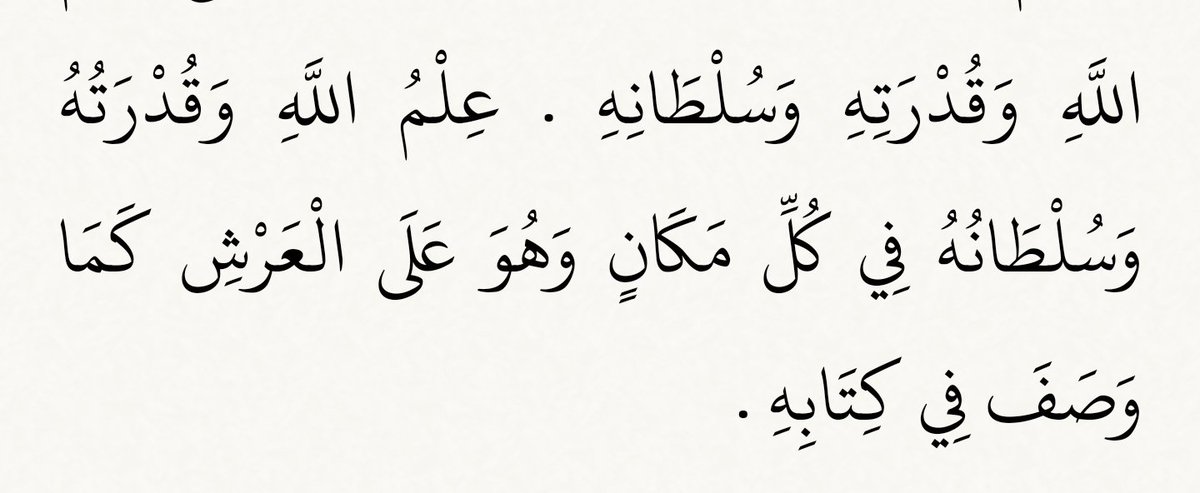 اللَّهِ وَقُدْرَتِهِ وَسُلْطَانِهِ . عِلْمُ اللَّهِ وَقُدْرَتُهُ
وَسُلْطَانُهُ فِي كُلِّ مَكَانٍ وَهُوَ عَلَى الْعَرْشِ كَمَا
وَصَفَ فِي كِتَابِهِ .